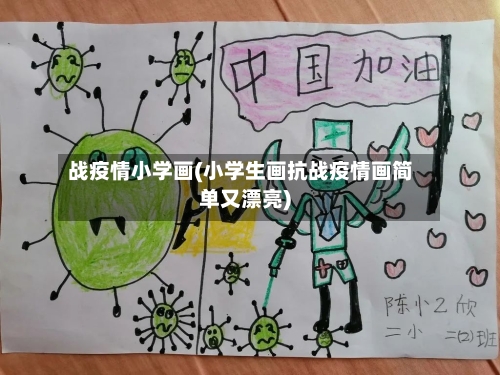 中国加油
战疫情小学画(小学生画抗战疫情画简
单又漂亮)
陈小乙欣
二小 二(2)班